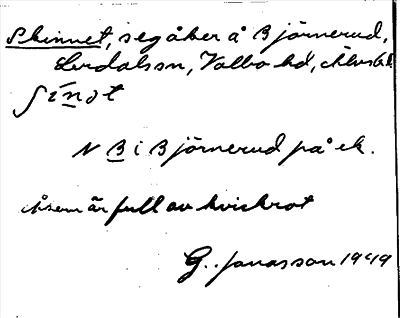 Skinnet, segåker å Björnerud,
Lerdalssn, Valbo hd, Älvsb. l.
ʃinət
N B i Björnerud på ek.
Åkern är full av kvickrot
G. Jonasson 1949